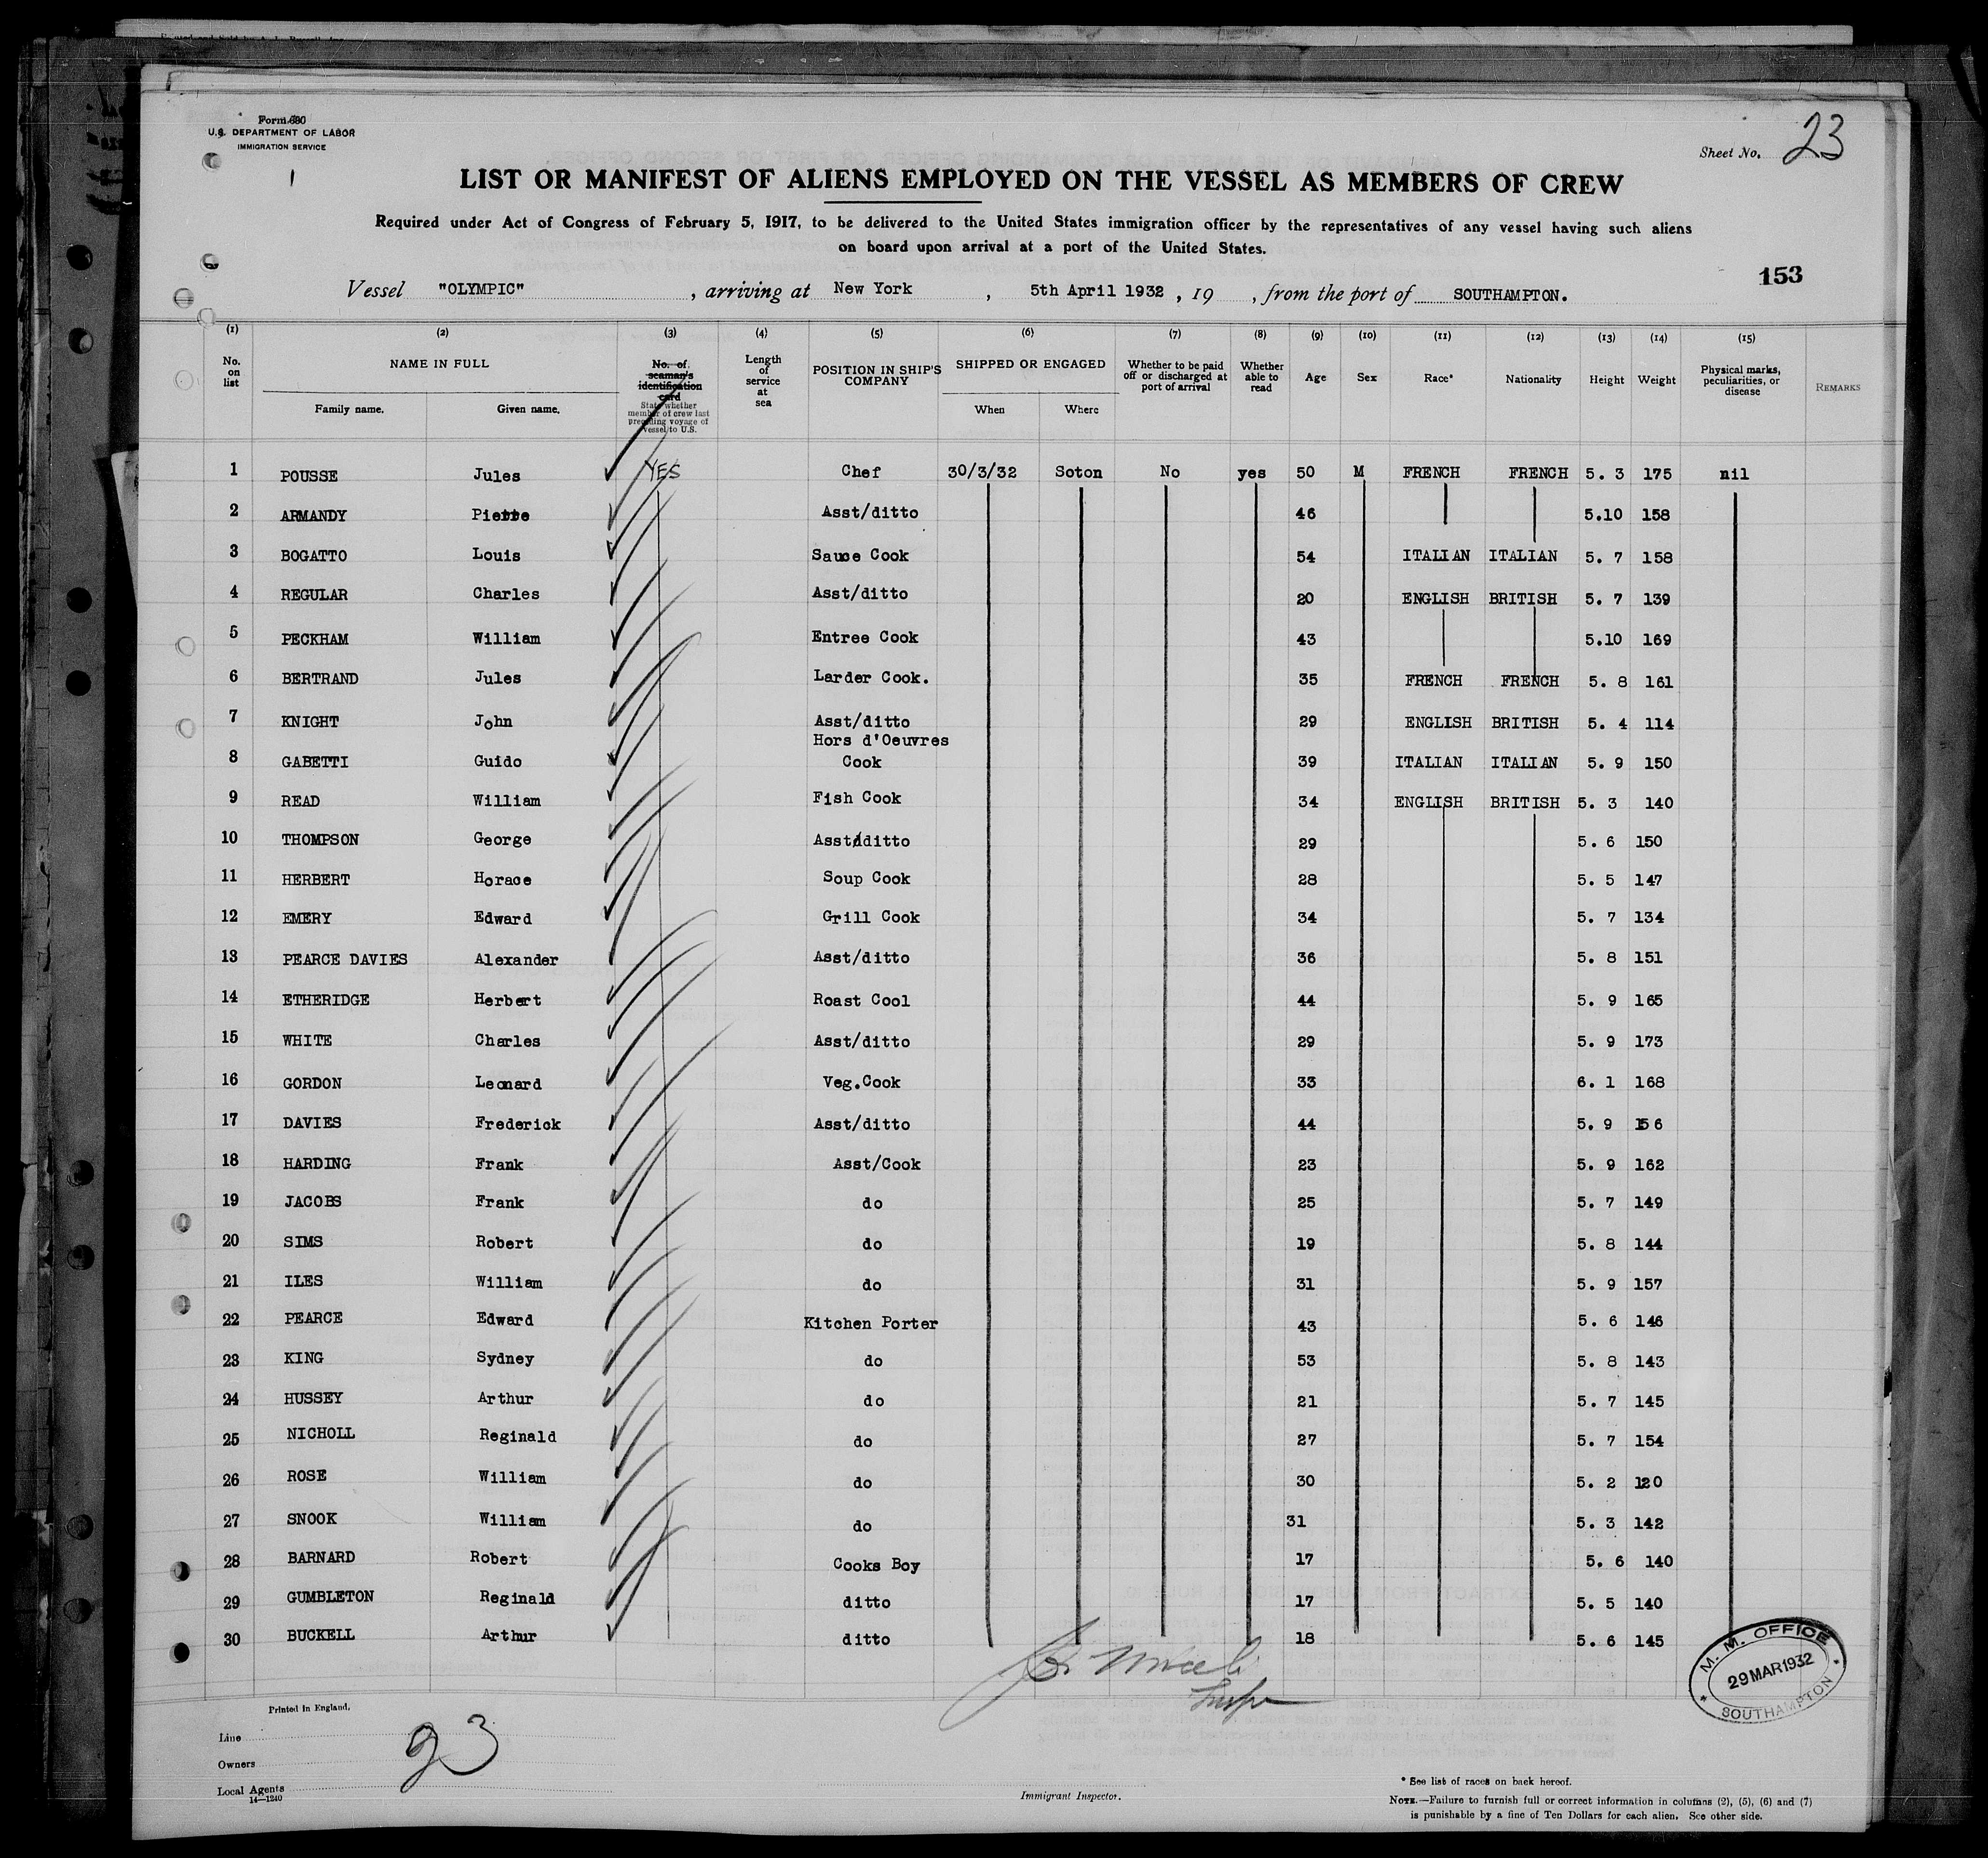 Form 680
U.S. DEPARTMENT OF LABOR
IMMIGRATION SERVICE
Sheet No. 23
LIST OR MANIFEST OF ALIENS EMPLOYED ON THE VESSEL AS MEMBERS OF CREW
Required under Act of Congress of February 5, 1917, to be delivered to the United States immigration officer by the representatives of any vessel having such aliens
on board upon arrival at a port of the United States.
153
Vessel "OLYMPIC", arriving at New York, 5th April 1932, 19 , from the port of SOUTHAMPTON.
(1) (2) (3) (4) (5) (6) (7) (8) (9) (10) (11) (12) (13) (14) (15)
No. on list NAME IN FULL Family name. Given name. No. of seaman's identification card State whether member of crew last preceding voyage of vessel to U.S. Length of service at sea POSITION IN SHIP'S COMPANY SHIPPED OR ENGAGED When Where Whether to be paid off or discharged at port of arrival Whether able to read Age Sex Race* Nationality Height Weight Physical marks, peculiarities, or disease REMARKS
1 POUSSE Jules YES Chef 30/3/32 Soton No yes 50 M FRENCH FRENCH 5. 3 175 nil
2 ARMANDY Pierre Asst/ditto 46 5.10 158
3 BOGATTO Louis Sauce Cook 54 ITALIAN ITALIAN 5. 7 158
4 REGULAR Charles Asst/ditto 20 ENGLISH BRITISH 5. 7 139
5 PECKHAM William Entree Cook 43 5.10 169
6 BERTRAND Jules Larder Cook. 35 FRENCH FRENCH 5. 8 161
7 KNIGHT John Asst/ditto 29 ENGLISH BRITISH 5. 4 114
8 GABETTI Guido Hors d'Oeuvres Cook 39 ITALIAN ITALIAN 5. 9 150
9 READ William Fish Cook 34 ENGLISH BRITISH 5. 3 140
10 THOMPSON George Asst/ditto 29 5. 6 150
11 HERBERT Horace Soup Cook 28 5. 5 147
12 EMERY Edward Grill Cook 34 5. 7 134
13 PEARCE DAVIES Alexander Asst/ditto 36 5. 8 151
14 ETHERIDGE Herbert Roast Cool 44 5. 9 165
15 WHITE Charles Asst/ditto 29 5. 9 173
16 GORDON Leonard Veg.Cook 33 6. 1 168
17 DAVIES Frederick Asst/ditto 44 5. 9 156
18 HARDING Frank Asst/Cook 23 5. 9 162
19 JACOBS Frank do 25 5. 7 149
20 SIMS Robert do 19 5. 8 144
21 ILES William do 31 5. 9 157
22 PEARCE Edward Kitchen Porter 43 5. 6 146
23 KING Sydney do 53 5. 8 143
24 HUSSEY Arthur do 21 5. 7 145
25 NICHOLL Reginald do 27 5. 7 154
26 ROSE William do 30 5. 2 120
27 SNOOK William do 31 5. 3 142
28 BARNARD Robert Cooks Boy 17 5. 6 140
29 GUMBLETON Reginald ditto 17 5. 5 140
30 BUCKELL Arthur ditto 18 5. 6 145
M. M. OFFICE
29 MAR 1932
SOUTHAMPTON
Printed in England.
Line
Owners
Local Agents
14—1240
23
Immigrant Inspector.
* See list of races on back hereof.
NOTE.—Failure to furnish full or correct information in columns (2), (5), (6) and (7)
is punishable by a fine of Ten Dollars for each alien. See other side.